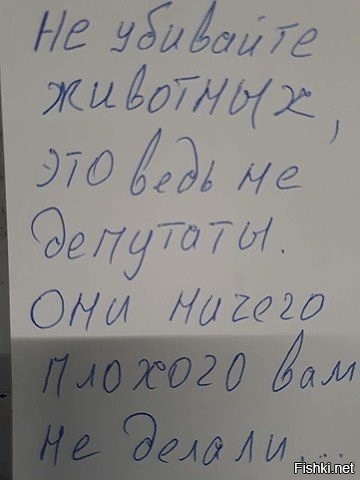 Не убивайте
животных,
это ведь не
депутаты.
Они ничего
плохого вам
не делали...
Fishki.net